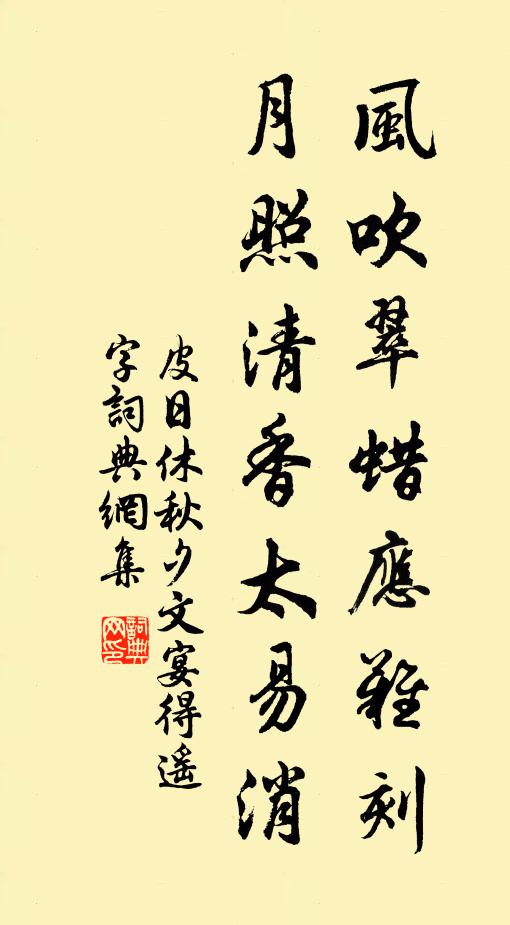 風吹翠蜡應難刻
月照清香太易消
皮日休秋夕文宴得遥
字詞典網集
詞典網印